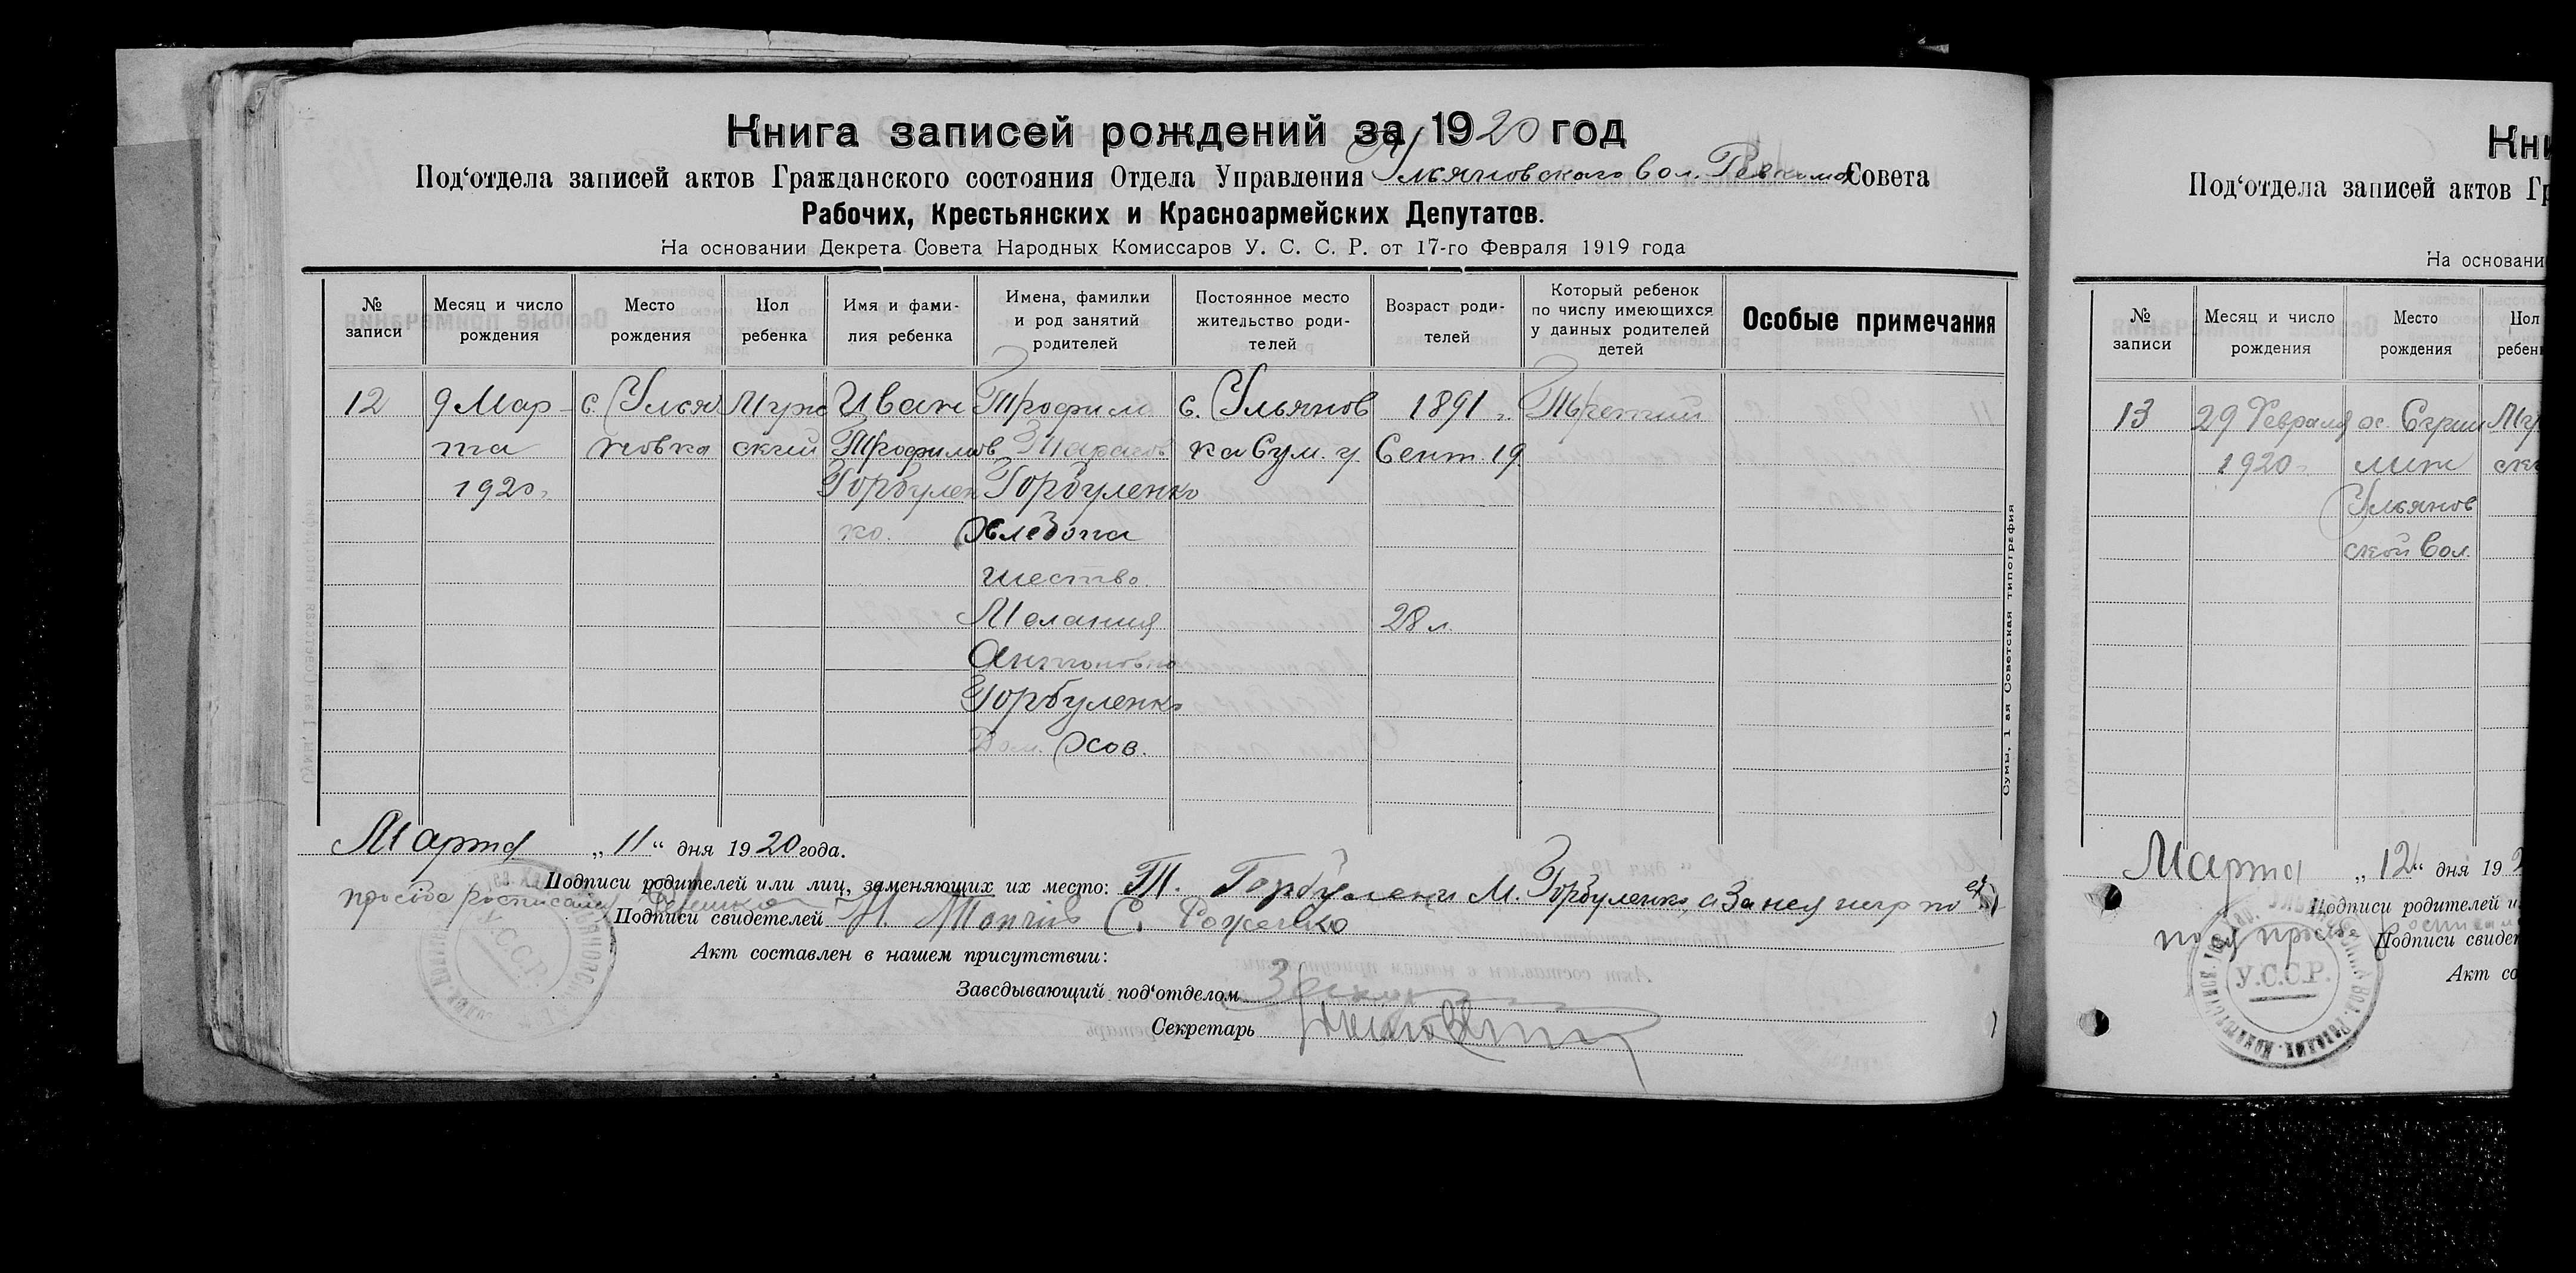 Книга записей рождений за 1920 год
Под‘отдела записей актов Гражданского состояния Отдела Управления Ульяновского Вол. Ревкома Совета
Рабочих, Крестьянских и Красноармейских Депутатов.
На основании Декрета Совета Народных Комиссаров У. С. С. Р. от 17-го Февраля 1919 года
№ записи
Месяц и число рождения
Место рождения
Пол ребенка
Имя и фами-
лия ребенка
Имена, фамилии
и род занятий
родителей
Постоянное место
жительство роди-
телей
Возраст роди-
телей
Который ребенок
по числу имеющихся
у данных родителей
детей
Особые примечания
12
9 Мар-
та
1920 г.
с. Улья
новка
Муж
ский
Иван
Трофимов
Горбулен
ко.
Трофим
Тарасов
Горбуленко
Хлебопа
шество
Мелания
Антоновна
Горбуленко
Дом. Хов.
с. Ульянов
ка Сум. у.
1891 г.
Сент. 19
28 л.
Третий
Марта „ 11 “ дня 1920 года.
Подписи родителей или лиц, заменяющих их место: Т. Горбуленко М. Горбуленко, а за нея негр по ея
просьбе росписался
Подписи свидетелей
Акт составлен в нашем присутствии:
Заведывающий под‘отделом
Секретарь
Сумы, 1 ая Советская типография
У.С.С.Р.
Кни
Под‘отдела записей актов Гр
На основани
№ записи
Месяц и число рождения
Место рождения
Пол ребен
13
29 Февраля
1920 г.
Ульянов
ской Вол.
Му
ск
Марта „ 12 “ дня 19 2
Подписи родителей и
Подписи свидет
Акт со
У.С.С.Р.